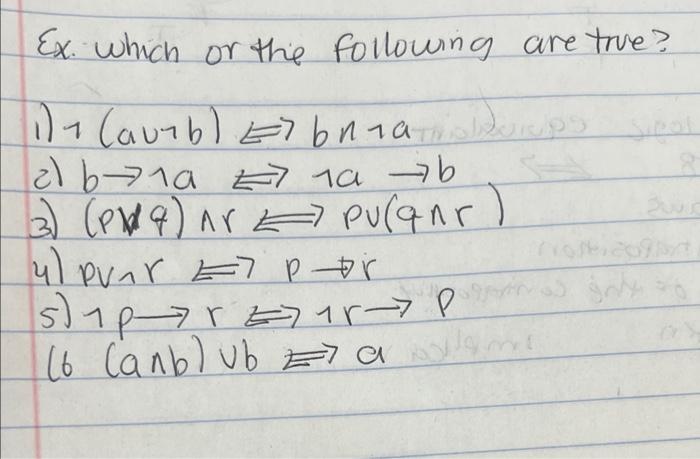 Ex. which or the following are true?
1) ¬(a∪¬b) ⟺ b∩¬a
2) b→¬a ⟺ ¬a→b
3) (p∨q)∧r ⟺ p∪(q∧r)
4) p∪¬r ⟺ p→r
5) ¬p→r ⟺ ¬r→p
(6 (a∧b)∪b ⟺ a